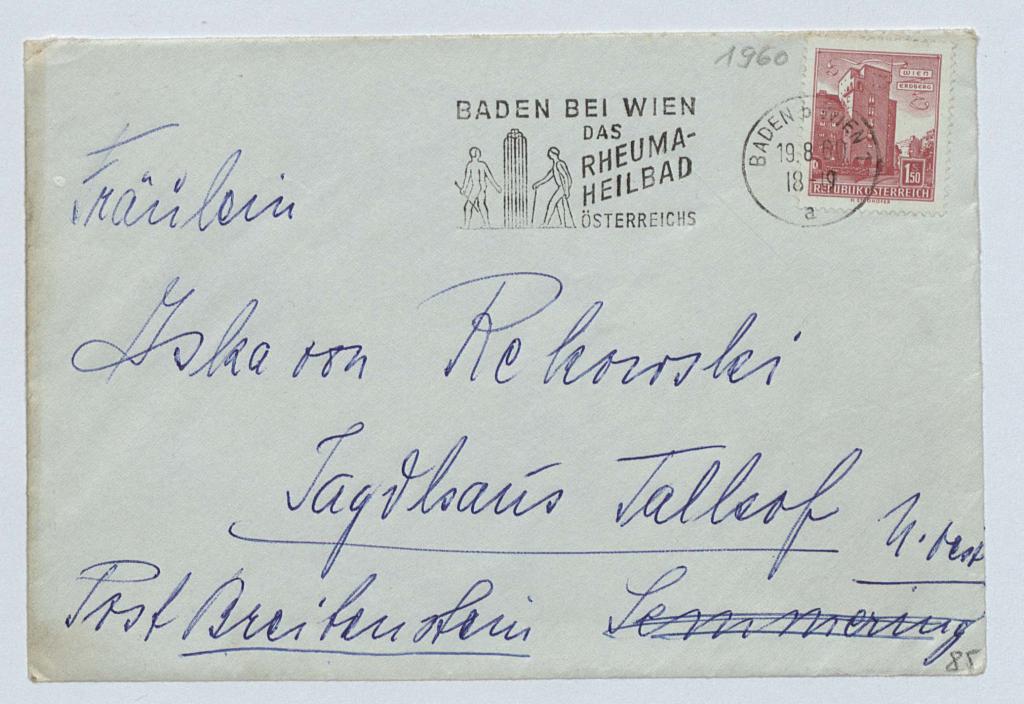 1960
BADEN BEI WIEN
DAS
RHEUMA-
HEILBAD
ÖSTERREICHS
BADEN b. WIEN 1
19.8.60
18-19
a
WIEN
ERDBERG
150
REPUBLIK ÖSTERREICH
Fräulein
Iska von Rekowski
Jagdhaus Tallhof
N. Öst
Post Breitenstein Semmering
85